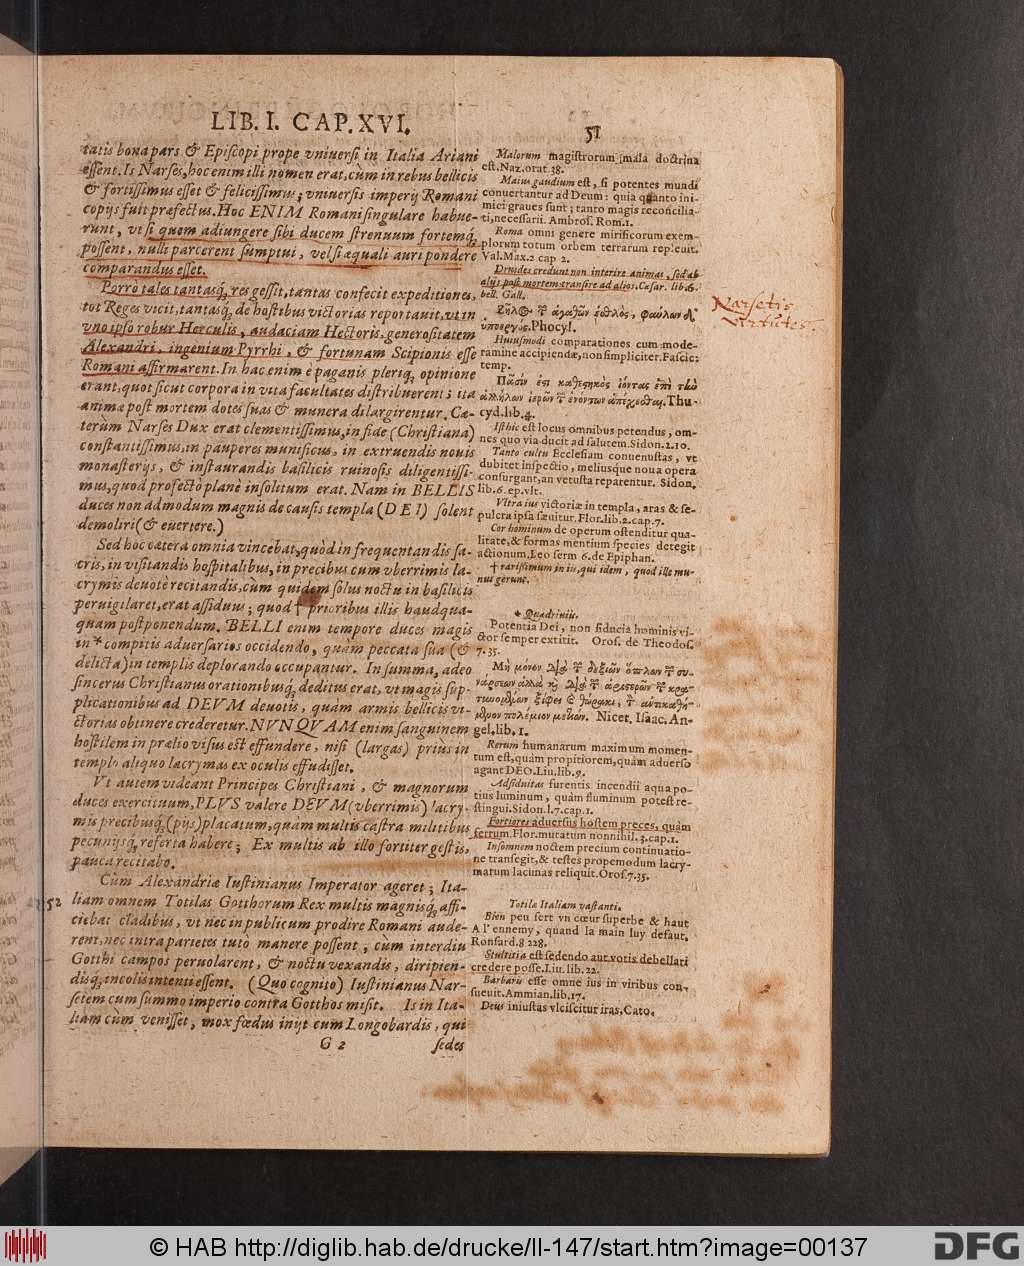 LIB. I. CAP. XVI. 51
tatis bona pars & Episcopi prope vniuersi in Italia Ariani
essent. Is Narses, hoc enim illi nomen erat, cum in rebus bellicis
& fortissimus esset & felicissimus; vniuersis imperij Romani
copijs fuit præfectus. Hoc ENIM Romani singulare habue-
runt, vt si quem adiungere sibi ducem strenuum fortemq́;
possent, nulli parcerent sumptui, vel si æquali auri pondere
comparandus esset.
Porrò tales tantasq́; res gessit, tantas confecit expeditiones,
tot Reges vicit, tantasq́; de hostibus victorias reportauit, vt in
vno ipso robur Herculis, audaciam Hectoris, generositatem
Alexandri, ingenium Pyrrhi, & fortunam Scipionis esse
Romani assirmarent. In hac enim è paganis pleriq; opinione
erant, quot sicut corpora in vita facultates distribuerent; ita
animæ post mortem dotes suas & munera dilargirentur. Cæ-
terùm Narses Dux erat clementissimus, in fide (Christiana)
constantissimus, in pauperes munificus, in extruendis nouis
monasterijs, & instaurandis basilicis ruinosis diligentissi-
mus, quod profectò planè insolitum erat. Nam in BELLIS
duces non admodum magnis de causis templa (DEI) solent
demoliri (& euertere.)
Sed hoc cætera omnia vincebat, quòd in frequentandis sa-
cris, in visitandis hospitalibus, in precibus cum vberrimis la-
crymis deuotè recitandis, cùm quidem solus noctu in basilicis
peruigilaret, erat assiduus; quod † prioribus illis haudqua-
quam postponendum. BELLI enim tempore duces magis
in * compitis aduersarios occidendo, quàm peccata sua (&
delicta) in templis deplorando occupantur. In summa, adeo
sincerus Christianus orationibusq́; deditus erat, vt magis sup-
plicationibus ad DEVM deuotis, quàm armis bellicis vi-
ctorias obtinere crederetur. NVNQVAM enim sanguinem
hostilem in prælio visus est effundere, nisi (largas) priùs in
templo aliquo lacrymas ex oculis effudisset.
Vt autem videant Principes Christiani, & magnorum
duces exercituum, PLVS valere DEVM (vberrimis) lacry-
mis precibusq́; (pijs) placatum, quam multis castra militibus
pecunijsq́; referta habere; Ex multis ab illo fortiter gestis,
pauca recitabo.
Cùm Alexandriæ Iustinianus Imperator ageret; Ita-
52 liam omnem Totilas Gotthorum Rex multis magnisq́; affi-
ciebat cladibus, vt nec in publicum prodire Romani aude-
rent, nec intra parietes tutò manere possent; cùm interdiu
Gotthi campos peruolarent, & noctu vexandis, diripien-
disq́; incolis intenti essent. (Quo cognito) Iustinianus Nar-
setem cum summo imperio contra Gotthos misit. Is in Ita-
liam cùm venisset, mox fœdus inijt cum Longobardis, qui
G 2 sedes
Malorum magistrorum mala doctrina
est. Naz. orat. 38.
Maius gaudium est, si potentes mundi
conuertantur ad Deum: quia quanto ini-
mici graues sunt; tanto magis reconcilia-
ti, necessarii. Ambros. Rom. 1.
Roma omni genere mirificorum exem-
plorum totum orbem terrarum repleuit.
Val. Max. 2 cap 2.
Druides credunt non interire animas, sed ab
alijs post mortem transire ad alios. Cæsar. lib. 6.
bell. Gall.
ὑπουργός. Phocyl.
Huiusmodi comparationes cum mode-
ramine accipiendæ, non simpliciter. Fascic:
temp.
Thu-
cyd. lib. 4.
Isthic est locus omnibus petendus, om-
nes quo via ducit ad salutem. Sidon. 2. 10.
Tanto cultu Ecclesiam conuenustas, vt
dubitet inspectio, meliusque noua opera
consurgant, an vetusta reparentur. Sidon.
lib. 6. ep. vlt.
Vltra ius victoriæ in templa, aras & se-
pulcra ipsa sæuitur. Flor. lib. 2. cap. 7.
Cor hominum de operum ostenditur qua-
litate, & formas mentium species detegit
actionum. Leo serm 6. de Epiphan.
† rarissimum in iis, qui idem, quod ille mu-
nus gerunt.
* Quadriuiis.
Potentia Dei, non fiducia hominis vi-
ctor semper extitit. Oros. de Theodos.
7. 35.
Nicet. Isaac. An-
gel. lib. 1.
Rerum humanarum maximum momen-
tum est, quàm propitiorem, quàm aduerso
agant DEO. Liu. lib. 9.
Assiduitas furentis incendii aqua po-
tius luminum, quàm fluminum potest re-
stingui. Sidon. l. 7. cap. 1.
Fortiores aduersùs hostem preces, quàm
ferrum. Flor. mutatum nonnihil. 3. cap. 1.
Insomnem noctem precium continuatio-
ne transegit, & testes propemodum lacry-
marum lacunas reliquit. Oros. 7. 35.
Totilæ Italiam vastanti.
Bien peu sert vn cœur superbe & haut
A l' ennemy, quand la main luy defaut.
Ronsard. 8 228.
Stultitia est sedendo aut votis debellari
credere posse. Liu. lib. 22.
Barbaris esse omne ius in viribus con-
sueuit. Ammian. lib. 17.
Deus iniustas vlciscitur iras, Cato.
Narsetis
Virtutes.
© HAB http://diglib.hab.de/drucke/ll-147/start.htm?image=00137
DFG